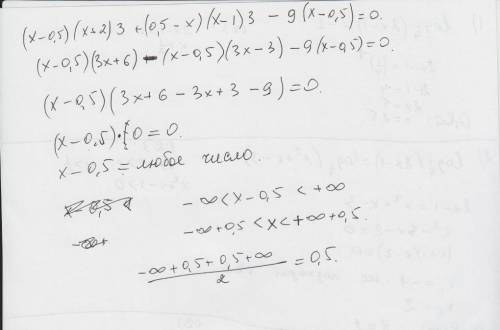 (x-0,5)(x+2)3 + (0,5-x)(x-1)3 - 9(x-0,5)=0.
(x-0,5)(3x+6) - (x-0,5)(3x-3) - 9(x-0,5)=0.
(x-0,5)(3x+6-3x+3-9)=0.
(x-0,5)·0=0.
x-0,5 = любое число.
-∞<x-0,5<+∞
-∞+0,5<x<+∞+0,5.
(-∞+0,5+0,5+∞)/2 = 0,5.